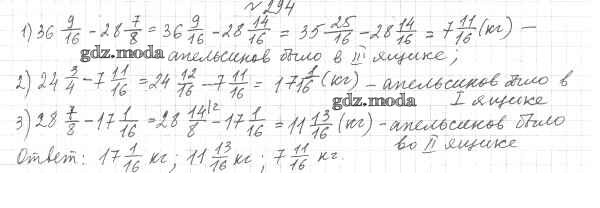 № 294
1) 36 9/16 - 28 7/8 = 36 9/16 - 28 14/16 = 35 25/16 - 28 14/16 = 7 11/16 (кг) —
gdz.moda апельсинов было в III ящике;
2) 24 3/4 - 7 11/16 = 24 12/16 - 7 11/16 = 17 1/16 (кг) - апельсинов было в
gdz.moda I ящике
3) 28 7/8 - 17 1/16 = 28 14/8 |2 - 17 1/16 = 11 13/16 (кг) - апельсинов было
во II ящике
Ответ: 17 1/16 кг; 11 13/16 кг; 7 11/16 кг.